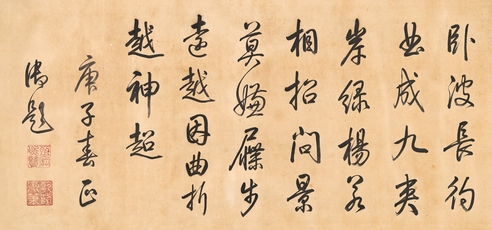 臥波長彴
曲成九夾
岸綠楊若
相招問景
莫嫌屧步
遠越因曲折
越神超
庚子春正
御題